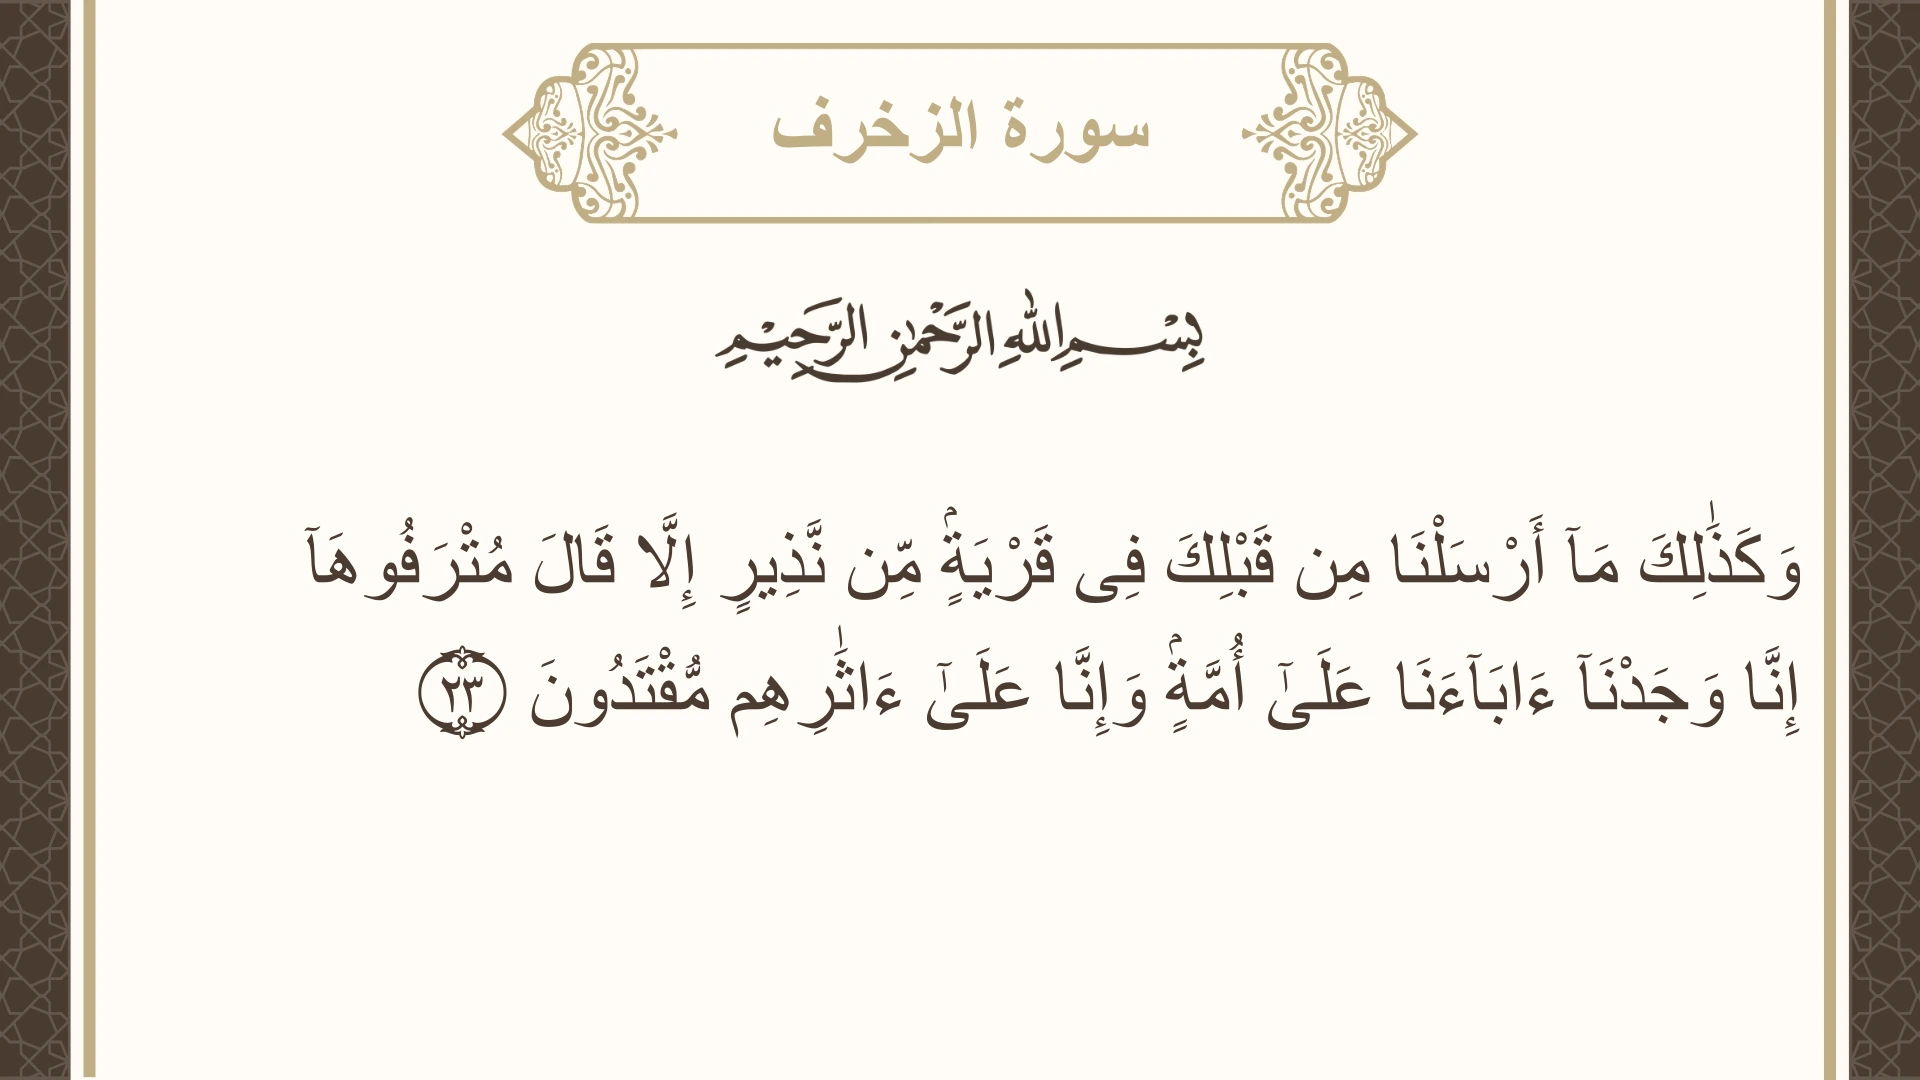 سورة الزخرف
بِسْمِ اللهِ الرَّحْمٰنِ الرَّحِيْمِ
وَكَذَٰلِكَ مَآ أَرْسَلْنَا مِن قَبْلِكَ فِى قَرْيَةٍۢ مِّن نَّذِيرٍ إِلَّا قَالَ مُتْرَفُوهَآ
إِنَّا وَجَدْنَآ ءَابَآءَنَا عَلَىٰٓ أُمَّةٍۢ وَإِنَّا عَلَىٰٓ ءَاثَٰرِهِم مُّقْتَدُونَ ٢٣